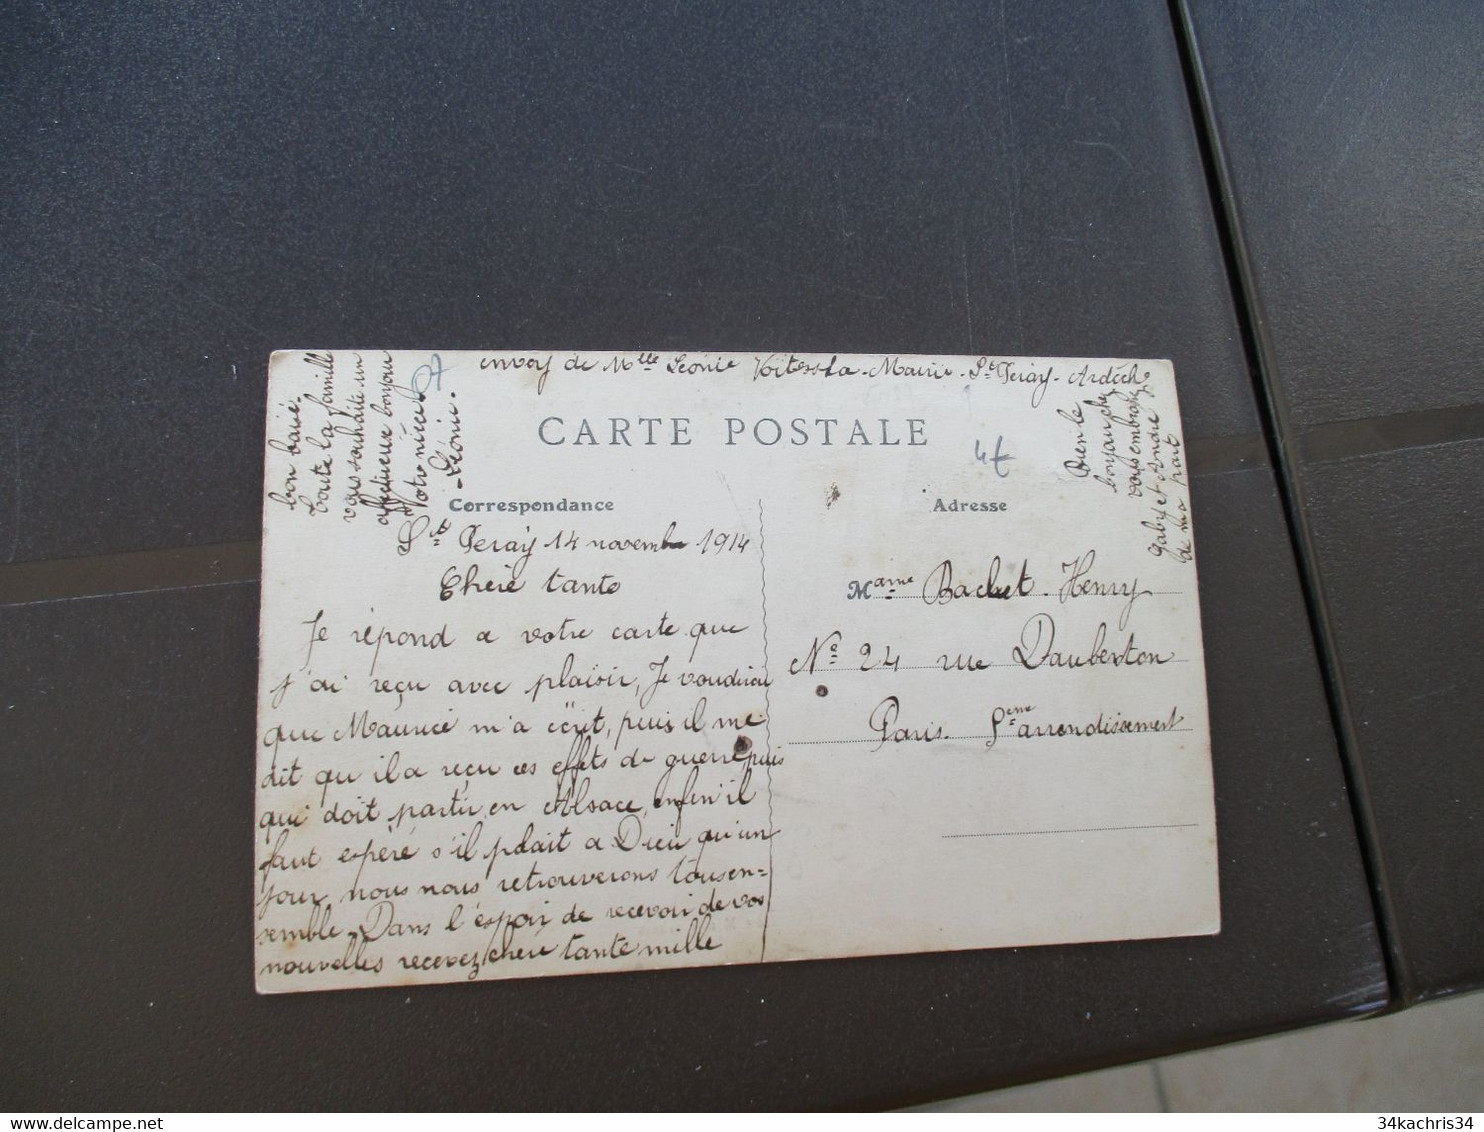 envoy de Mlle Léonie à la Mairie. St Peray. Ardèch
CARTE POSTALE
4€
Correspondance
Adresse
St Peray 14 novembre 1914
Chere tante
Je répond a votre carte que
j'ai reçu avec plaisir, Je voudrai
que Maurice m'a écrit, puis il me
dit qu il a reçu ces effets de guerre puis
qui doit partir en Alsace, enfin il
faut espéré s'il plait a Dieu qu'un
jour nous nous retrouverons tous en=
semble. Dans l'espoir de recevoir de vos
nouvelles recevez chere tante mille
bon baisé.
toute la famille
vous souhaite un
affectueux bonjour
Votre nièce
Léonie.
Mame Bachet. Henry
No 24 rue Daubenton
Paris. 5eme arrondissement
bien le
bonjour chez
vous embrassez
Gaby et André
de ma part
34kachris34